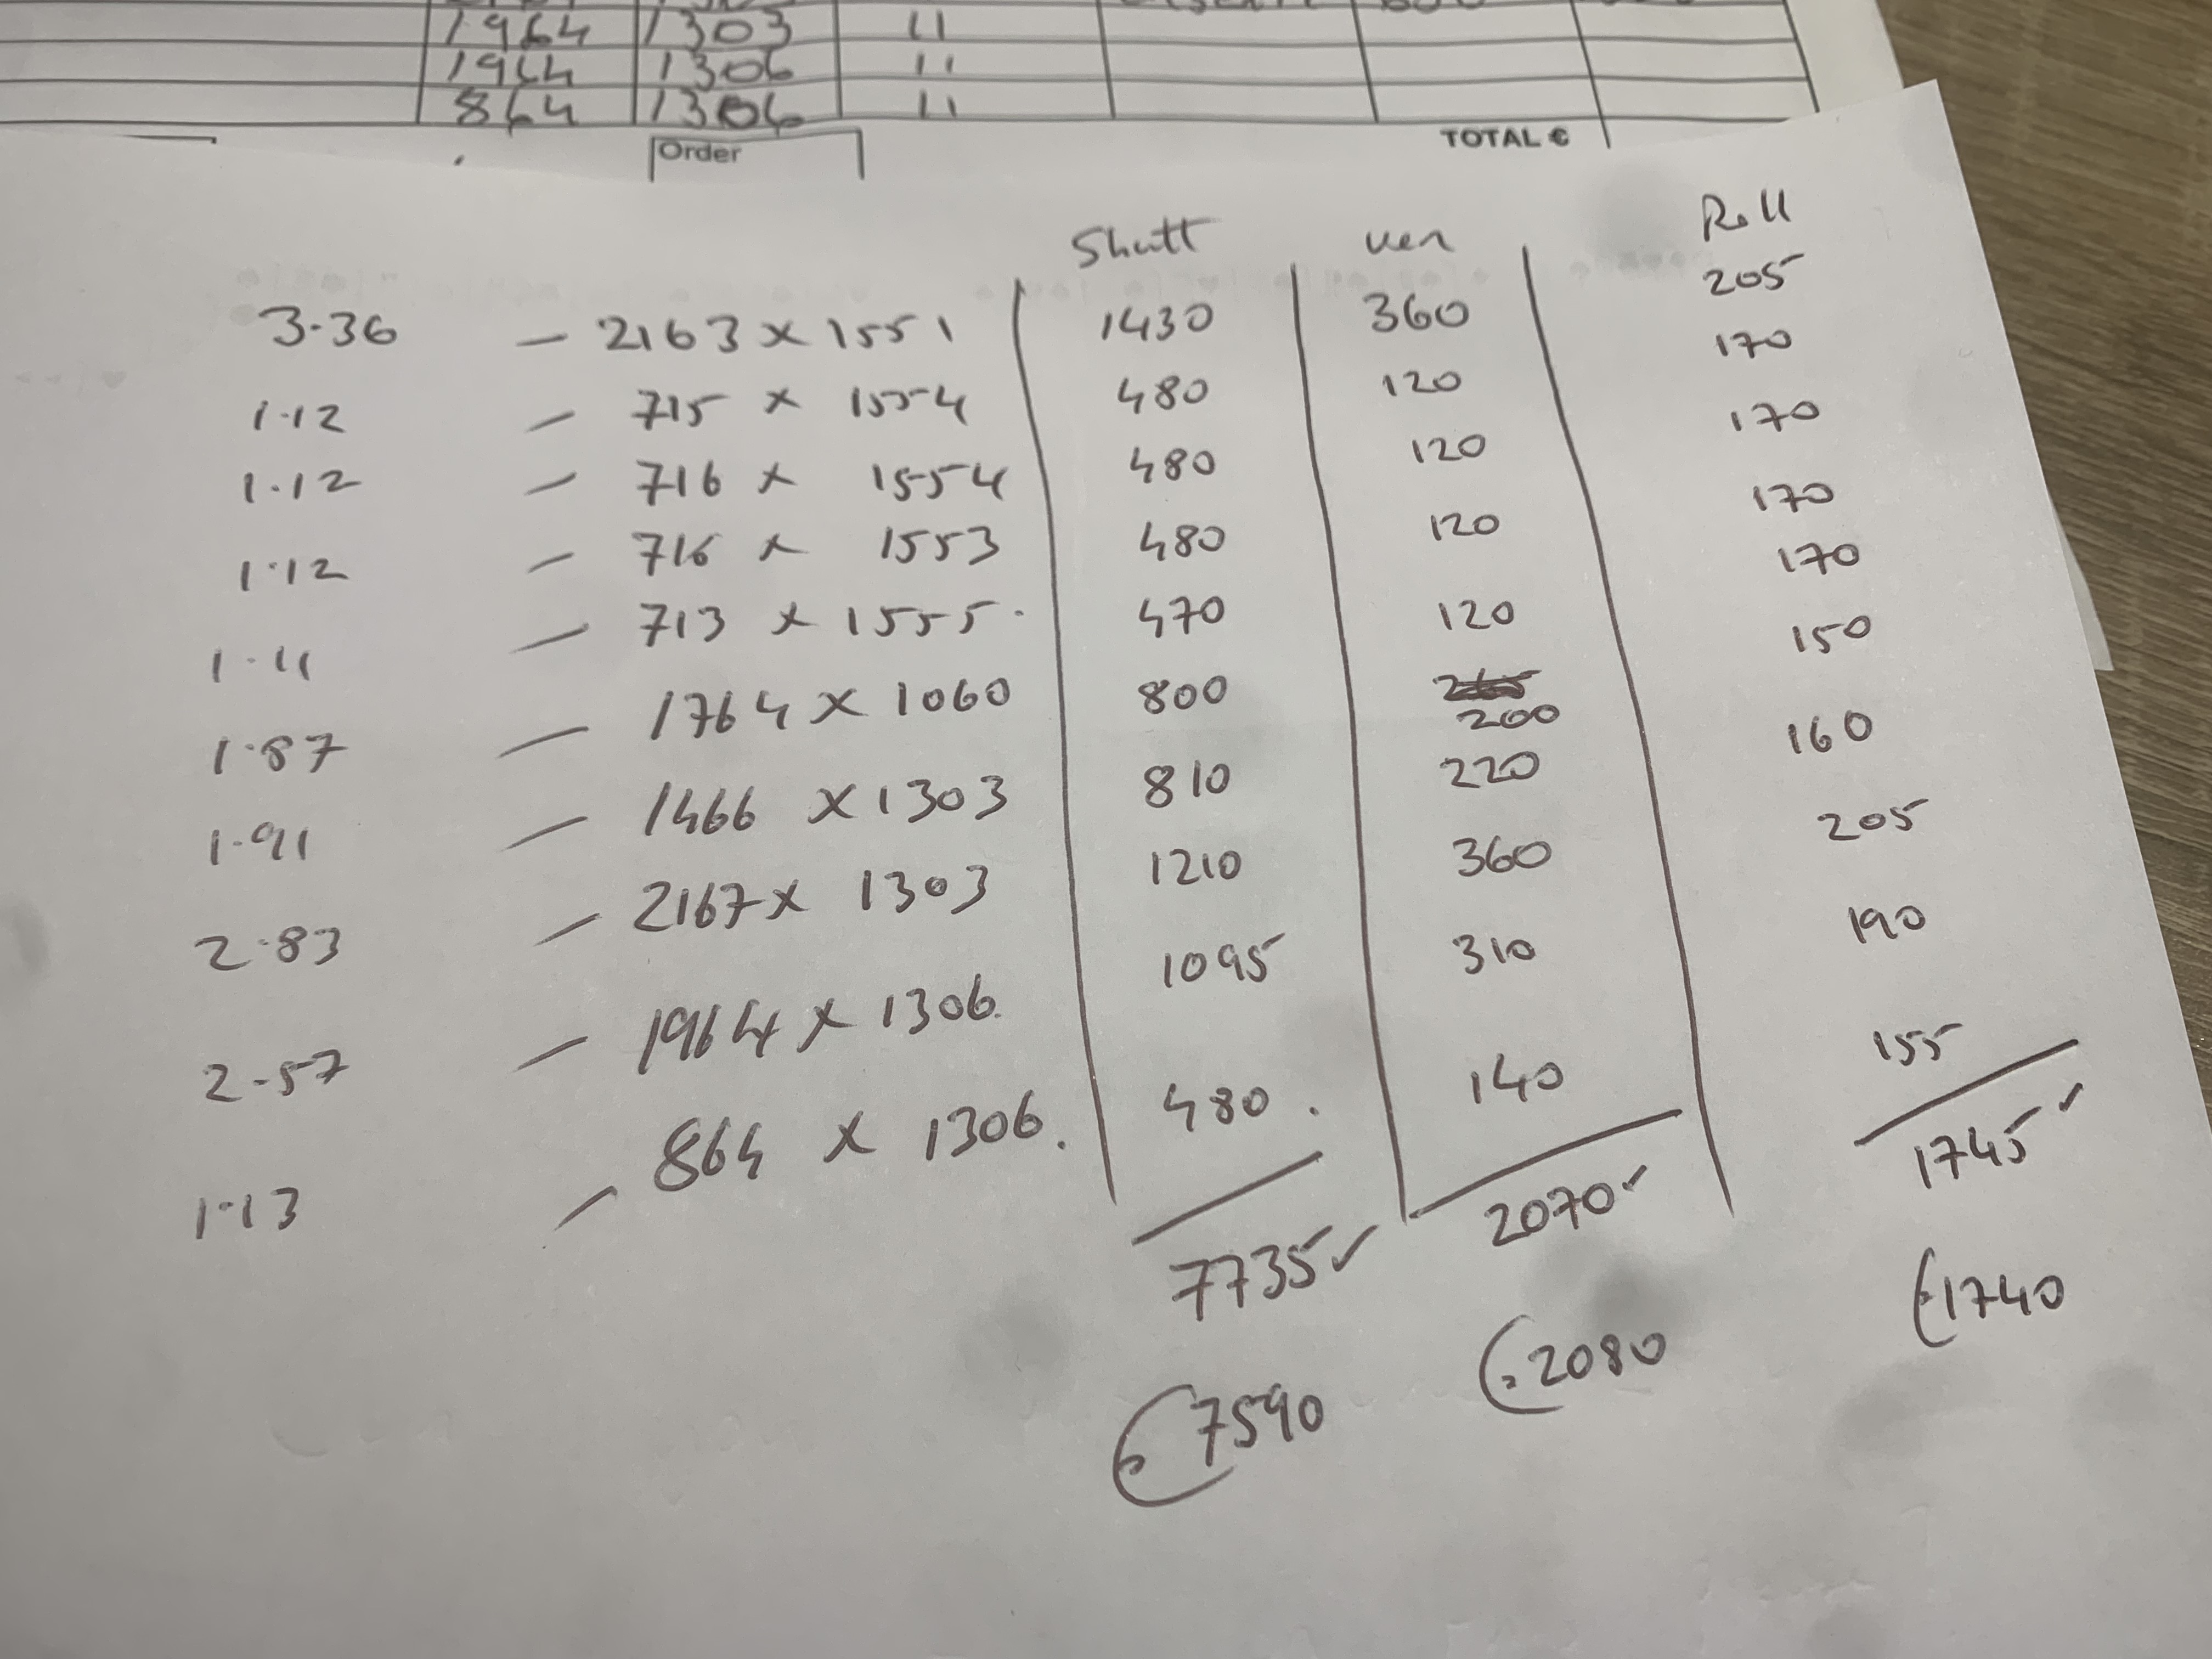 1964 1303 11
1964 1306 11
864 1306 11
Order TOTAL €
Shutt ven Roll
3.36 — 2163 x 1551 1430 360 205
1.12 — 715 x 1554 480 120 170
1.12 — 716 x 1554 480 120 170
1.12 — 716 x 1553 480 120 170
1.11 — 713 x 1555. 470 120 170
1.87 — 1764 x 1060 800 200 150
1.91 — 1466 x 1303 810 220 160
2.83 — 2167 x 1303 1210 360 205
2.57 — 1964 x 1306. 1095 310 190
1.13 — 864 x 1306. 480. 140 155
7735 ✓ 2070 ✓ 1745 ✓
7590 2080 1740